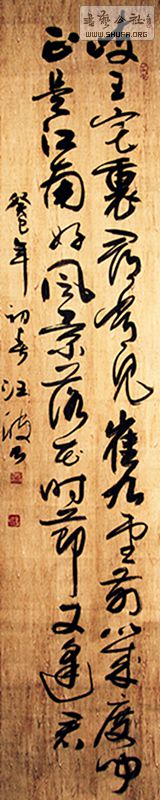 岐王宅裏尋常見崔九堂前幾度聞
正是江南好風景落花時節又逢君
癸巳年初春汪波书
书艺公社
WWW.SHUFA.ORG